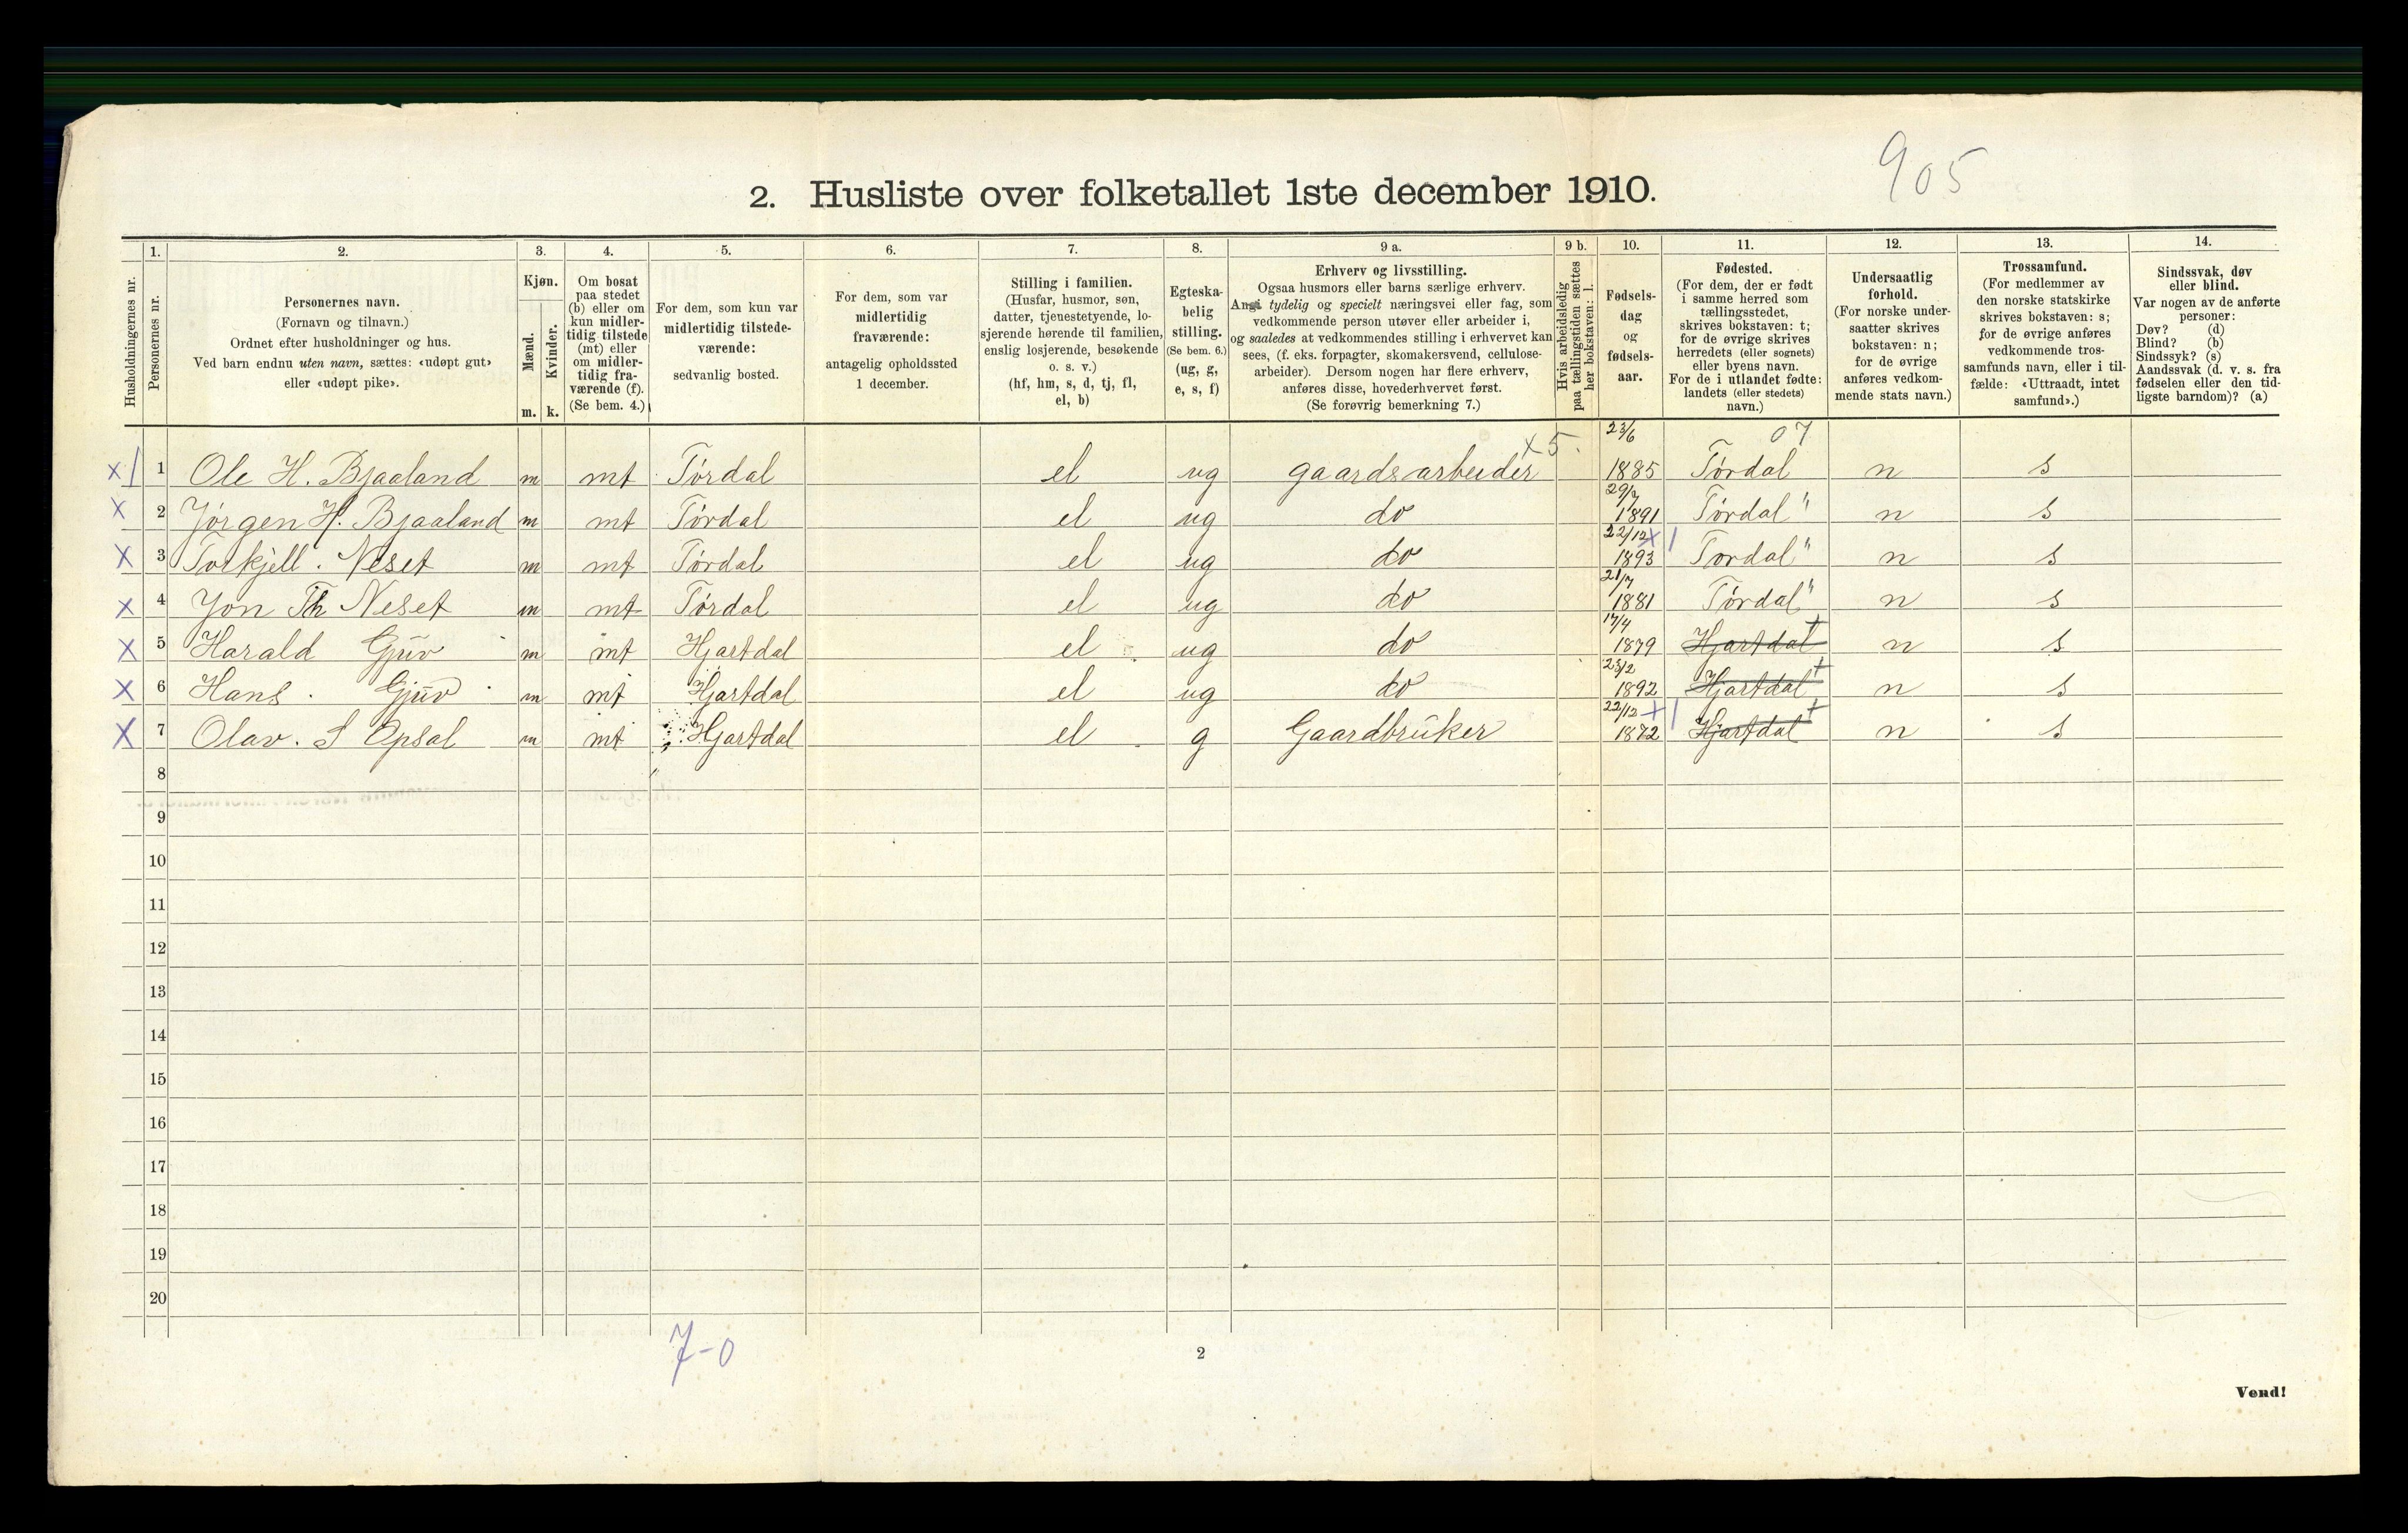 905
2. Husliste over folketallet 1ste december 1910.
Husholdningernes nr.
1.
Personernes nr.
2.
Personernes navn.
(Fornavn og tilnavn.)
Ordnet efter husholdninger og hus.
Ved barn endnu uten navn, sættes: «udøpt gut»
eller «udøpt pike».
3.
Kjøn.
Mænd.
Kvinder.
m. k.
4.
Om bosat
paa stedet
(b) eller om
kun midler-
tidig tilstede
(mt) eller
om midler-
tidig fra-
værende (f).
(Se bem. 4.)
5.
For dem, som kun var
midlertidig tilstede-
værende:
sedvanlig bosted.
6.
For dem, som var
midlertidig
fraværende:
antagelig opholdssted
1 december.
7.
Stilling i familien.
(Husfar, husmor, søn,
datter, tjenestetyende, lo-
sjerende hørende til familien,
enslig losjerende, besøkende
o. s. v.)
(hf, hm, s, d, tj, fl,
el, b)
8.
Egteska-
belig
stilling.
(Se bem. 6.)
(ug, g,
e, s, f)
9 a.
Erhverv og livsstilling.
Ogsaa husmors eller barns særlige erhverv.
Angi tydelig og specielt næringsvei eller fag, som
vedkommende person utøver eller arbeider i,
og saaledes at vedkommendes stilling i erhvervet kan
sees, (f. eks. forpagter, skomakersvend, cellulose-
arbeider). Dersom nogen har flere erhverv,
anføres disse, hovederhvervet først.
(Se forøvrig bemerkning 7.)
9 b.
Hvis arbeidsledig
paa tællingstiden sættes
her bokstaven: l.
10.
Fødsels-
dag
og
fødsels-
aar.
11.
Fødested.
(For dem, der er født
i samme herred som
tællingsstedet,
skrives bokstaven: t;
for de øvrige skrives
herredets (eller sognets)
eller byens navn.
For de i utlandet fødte:
landets (eller stedets)
navn.)
12.
Undersaatlig
forhold.
(For norske under-
saatter skrives
bokstaven: n;
for de øvrige
anføres vedkom-
mende stats navn.)
13.
Trossamfund.
(For medlemmer av
den norske statskirke
skrives bokstaven: s;
for de øvrige anføres
vedkommende tros-
samfunds navn, eller i til-
fælde: «Uttraadt, intet
samfund».)
14.
Sindssvak, døv
eller blind.
Var nogen av de anførte
personer:
Døv? (d)
Blind? (b)
Sindssyk? (s)
Aandssvak (d. v. s. fra
fødselen eller den tid-
ligste barndom)? (a)
x 5. 23/6 07
x 1 Ole H. Bjaaland m mt Tørdal el ug gaardsarbeider 1885 Tørdal n s
29/7
x 2 Jørgen H. Bjaaland m mt Tørdal el ug do 1891 Tørdal " n s
22/12 x
x 3 Torkjell. Neset m mt Tørdal el ug do 1893 Tørdal " n s
21/7
x 4 Jon Th Neset m mt Tørdal el ug do 1881 Tørdal " n s
17/4
x 5 Harald Gjuv m mt Hjartdal el ug do 1879 Hjartdal n s
23/2
x 6 Hans. Gjuv m mt Hjartdal el ug do 1892 Hjartdal n s
22/12 x
x 7 Olav. S Epsal m mt Hjartdal el g Gaardbruker 1872 Hjartdal n s
8
9
10
11
12
13
14
15
16
17
18
19
20
7-0
2
Vend!